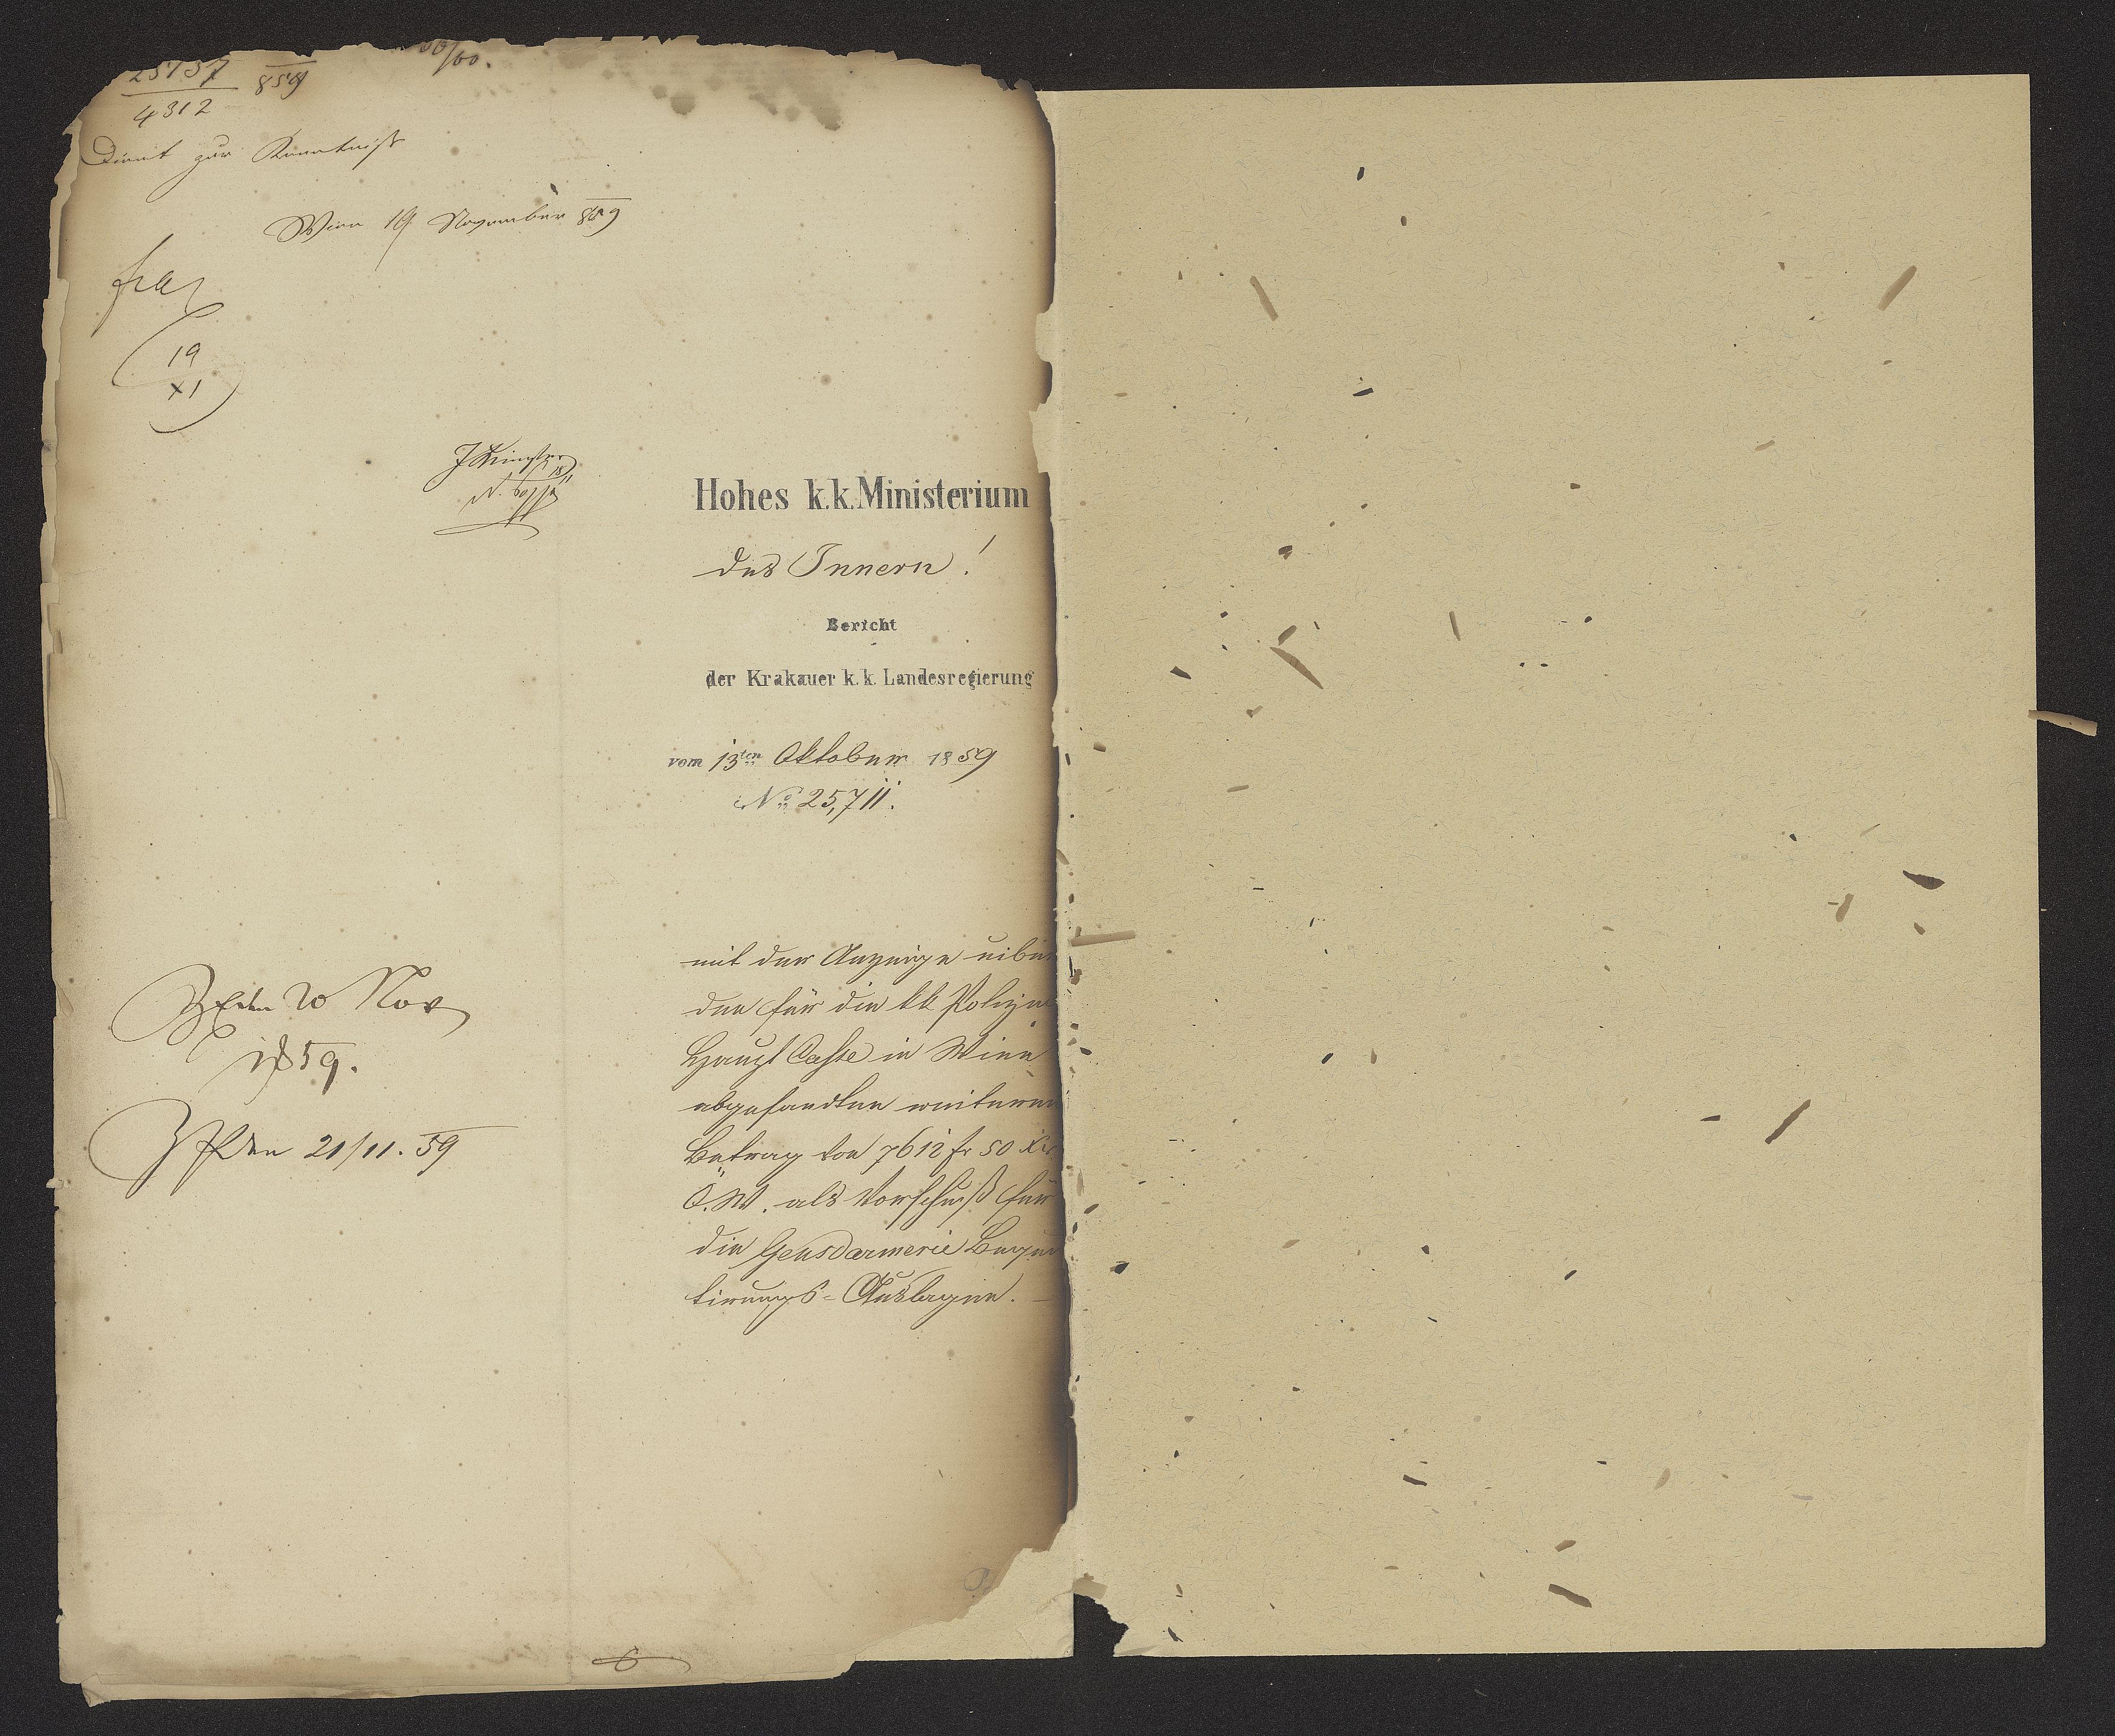 25737
4312
859
Dient zur Kenntniß
Wien 19 November 859
19
XI
18/11
Hohes k.k. Ministerium
des Innern!
Bericht
der Krakauer k. k. Landesregierung
vom 13ten Oktober 1859
No 25,711.
mit der Anzeige uiber
den für die kk Polizei
Haupt Casse in Wien
abgesandten weiteren
Betrag von 7612 fr 50 Xr
Ö.W. als Vorschuß für
die Gensdarmerie Bequar
tirungs-Auslagen. –
20 Nov
1859.
21/11. 59
6